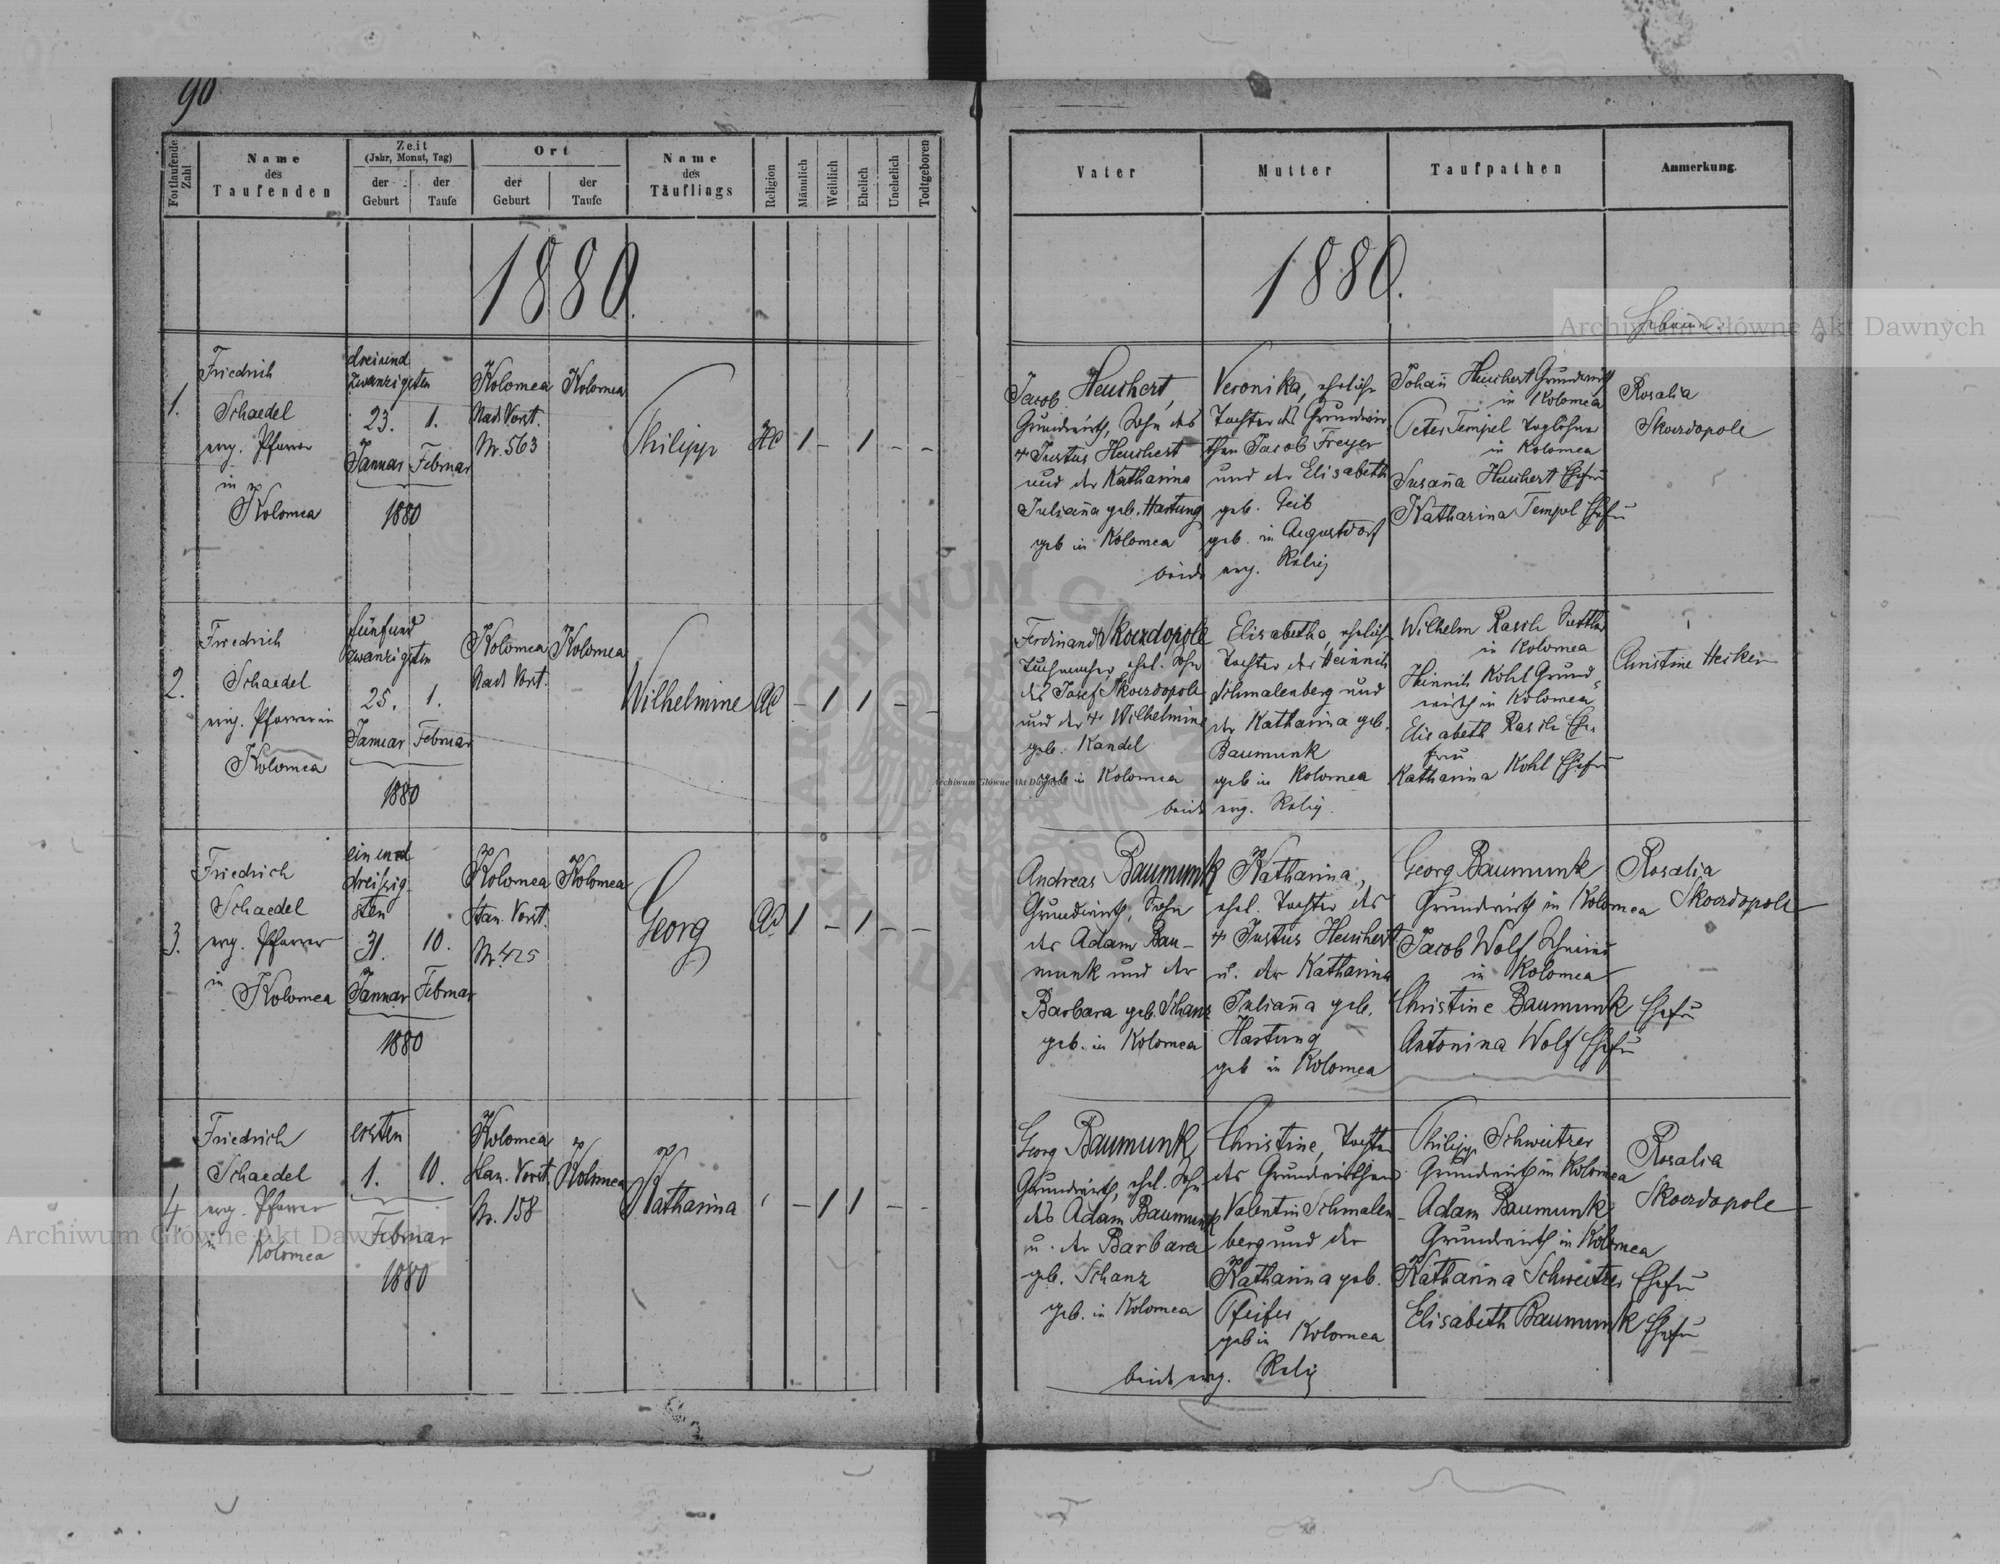 90
Fortlaufende Zahl
Name des Taufenden
Zeit
(Jahr, Monat, Tag)
der Geburt
der Taufe
Ort
der Geburt
der Taufe
Name des Täuflings
Religion
Männlich
Weiblich
Ehelich
Unehelich
Todtgeboren
Vater
Mutter
Taufpathen
Anmerkung.
1880.
1880.
1.
Friedrich
Schaedel
evg. Pfarrer
in
Kolomea
dreiund
zwanzigsten
23. 1.
Januar Februar
1880
Kolomea
Nad. Vorst.
Nr. 563
Kolomea
Philipp
AC
1 – 1 – –
Jacob Heuchert,
Grundwirth, Sohn des
+ Justus Heuchert
und der Katharina
Julian̄a geb. Hartung
geb in Kolomea
Veronika, eheliche
Tochter des Grundwir
then Jacob Freyer
und der Elisabeth
geb. Geib
geb. in Augustdorf
beide evg. Relig
Johan̄ Heuchert Grundwirth
in Kolomea
Peter Tempel Taglöhner
in Kolomea
Susan̄a Heuchert Ehefr
Katharina Tempel Ehefr
Rosalia
Skoerdopole
2.
Friedrich
Schaedel
evg. Pfarrer in
Kolomea
fünfund
zwanzigsten
25. 1.
Januar Februar
1880
Kolomea
Nad. Vorst.
Kolomea
Wilhelmine
AC
– 1 1 – –
Ferdinand Skoerdopole
Tuchmacher, ehel. Sohn
des Josef Skoerdopole
und der + Wilhelmine
geb. Kandel
geb in Kolomea
Elisabetha, eheliche
Tochter des Heinrich
Schmalenberg und
der Katharina geb.
Baumunk
geb in Kolomea
beide evg. Relig.
Wilhelm Rasch Sattler
in Kolomea
Heinrich Kohl Grund-
wirth in Kolomea
Elisabeth Rasch Ehe-
frau
Katharina Kohl Ehefr
Christine Hecker
3.
Friedrich
Schaedel
evg. Pfarrer
in
Kolomea
ein und
dreißig-
sten
31. 10.
Januar Februar
1880
Kolomea
Stan. Vorst.
Nr. 425
Kolomea
Georg
AC
1 – 1 – –
Andreas Baumunk
Grundwirth, Sohn
des Adam Bau-
munk und der
Barbara geb. Schanz
geb. in Kolomea
Katharina,
ehel. Tochter des
+ Justus Heuchert
u. der Katharina
Julian̄a geb.
Hartung
geb in Kolomea
Georg Baumunk
Grundwirth in Kolomea
Jacob Wolf Schmied
in Kolomea
Christine Baumunk Ehefr
Antonina Wolf Ehefr
Rosalia
Skoerdopole
4
Friedrich
Schaedel
evg. Pfarrer
in
Kolomea
ersten
1. 10.
Februar
1880
Kolomea
Stan. Vorst.
Nr. 158
Kolomea
Katharina
– 1 1 – –
Georg Baumunk,
Grundwirth, ehel. Sohn
des Adam Baumunk
u. der Barbara
geb. Schanz
geb. in Kolomea
Christine, Tochter
des Grundwirthen
Valentin Schmalen-
berg und der
Katharina geb.
Pfeifer
geb in Kolomea
beide evg. Relig
Philipp Schweitzer
Grundwirth in Kolomea
Adam Baumunk
Grundwirth in Kolomea
Katharina Schweitzer Ehefr
Elisabeth Baumunk Ehefr
Rosalia
Skoerdopole
Archiwum Główne Akt Dawnych
Archiwum Główne Akt Dawnych
Archiwum Główne Akt Dawnych